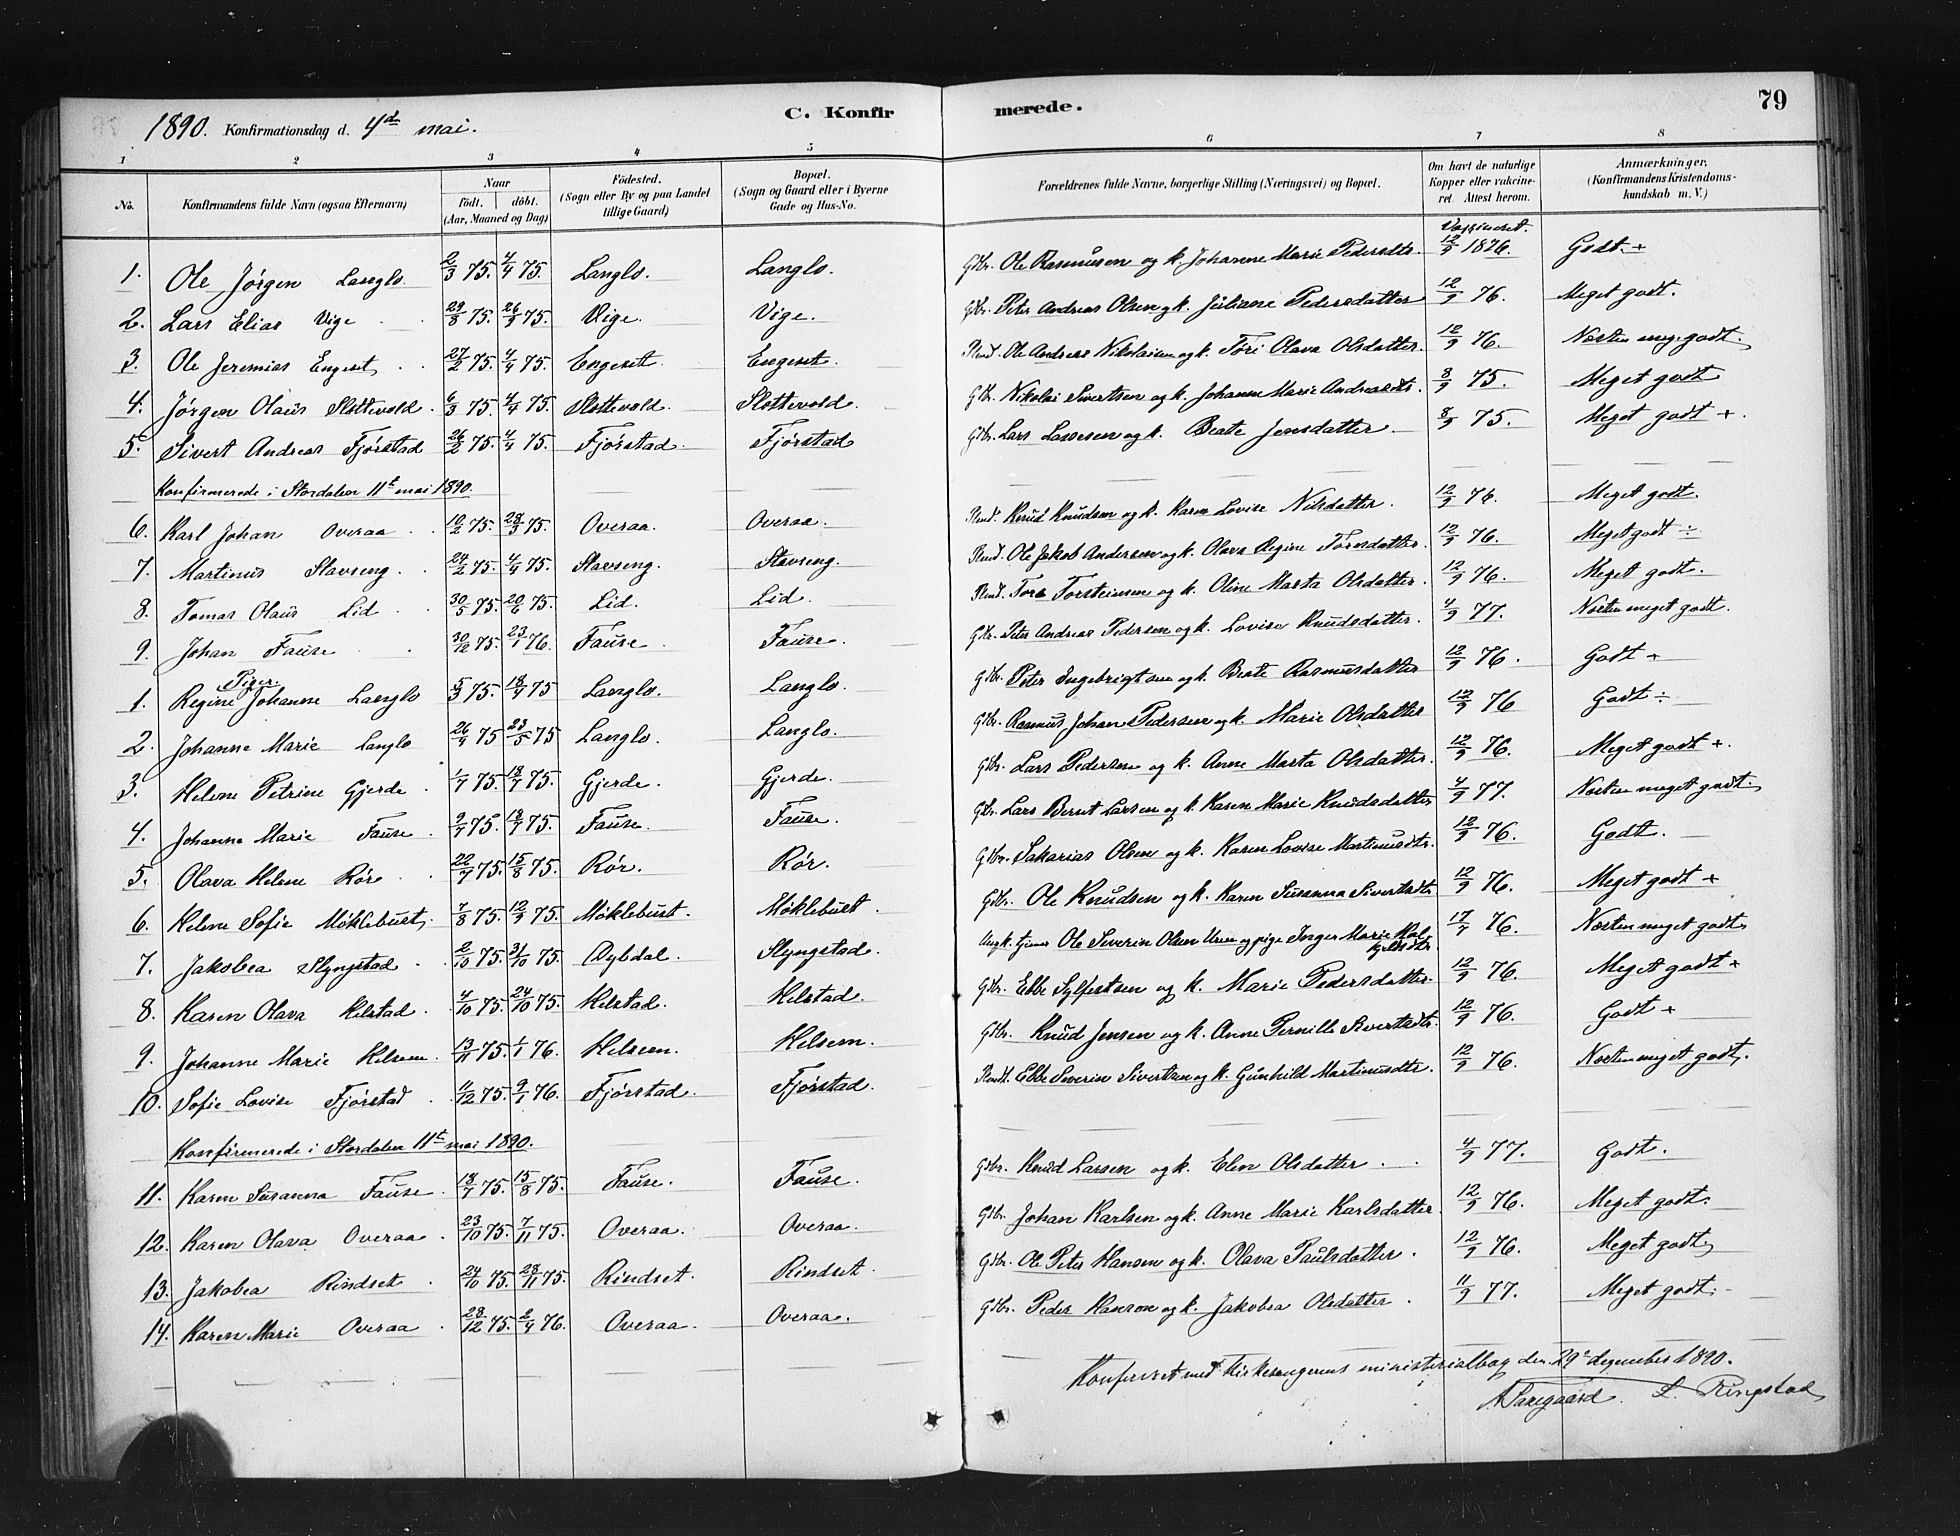 1890. Konfirmationsdag d. 4de mai. C. Konfir merede. 79
1 2 3 4 5 6 7 8
No. Konfirmandens fulde Navn (ogsaa Efternavn) Naar födt. döbt. (Aar, Maaned og Dag) Födested. (Sogn eller By og paa Landet tillige Gaard) Bopæl. (Sogn og Gaard eller i Byerne Gade og Hus-No. Forældrenes fulde Navne, borgerlige Stilling (Næringsvei) og Bopæl. Om havt de naturlige Kopper eller vakcineret. Attest herom. Anmærkninger. (Konfirmandens Kristendomskundskab m. V.)
1. Ole Jørgen Langlo. 2/3 75. 4/4 75. Langlo. Langlo. Gbr. Ole Rasmussen og k. Johanne Marie Pedersdtr. Vaxsineret. 12/9 1876. Godt. +
2. Lars Elias Vige 29/8 75. 26/9 75. Vige. Vige. Gbr. Peter Andreas Olsen og k. Juliane Pedersdatter 12/9 76. Meget godt.
3. Ole Jeremias Engeset 27/2 75. 4/4 75. Engeset. Engeset. Ole Andreas Nikolaisen og k. Tøri Olava Olsdatter. 12/9 76. Næsten meg. godt.
4. Jørgen Olaus Slottevold. 6/3 75. 4/4 75. Slottevold. Slottevold. Gbr. Nikolai Sivertsen og k. Johanne Marie Andreasdtr. 8/9 75. Meget godt
5. Sivert Andreas Fjørstad 26/2 75. 4/4 75. Fjørstad. Fjørstad Gbr. Lars Lassesen og k. Beate Jensdatter. 8/9 75. Meget godt +.
Konfirmerede i Stordalen 11te mai 1890.
6. Karl Johan Overaa 10/2 75. 28/3 75. Overaa. Overaa. Knud Knudsen og k. Karen Lovise Nilsdatter. 12/9 76. Meget godt.
7. Martinus Stavseng. 24/2 75. 4/4 75. Stavseng. Stavseng. Ole Jakob Andersen og k. Olava Regine Toresdatter. 12/9 76. Meget godt ÷
8. Tomas Olaus Lid 30/5 75. 20/6 75. Lid. Lid. Tore Torsteinsen og k. Oline Marta Olsdatter. 12/9 76. Meget godt.
9. Johan Fause 30/12 75. 23/1 76. Fause. Fause. Gbr. Peter Andreas Pedersen og k. Lovise Knudsdatter. 4/9 77. Næsten meget godt.
Piger.
1. Regine Johanne Langlo 5/3 75. 18/4 75 Langlo. Langlo. Gbr. Peter Ingebrigtsen og k. Beate Rasmusdatter 12/9 76. Godt +
2. Johanne Marie Langlo 26/4 75 23/5 75 Langlo. Langlo. Gbr. Rasmus Johan Pedersen og k. Marie Olsdatter 12/9 76 Godt ÷
3. Helene Petrine Gjerde. 1/7 75. 18/7 75. Gjerde. Gjerde. Gbr. Lars Pedersen og k. Anne Marta Olsdatter. 12/9 76. Meget godt +.
4. Johanne Marie Fause 9/7 75. 18/7 75. Fause. Fause. Gbr. Lars Bernt Larsen og k. Karen Marie Knudsdatter 4/9 77. Næsten meget godt.
5. Olava Helene Rør 22/7 75. 15/8 75. Rør. Rør. Gbr. Sakarias Olsen og k. Karen Lovise Martinusdtr. 12/9 76. Godt.
6. Helene Sofie Møklebust. 7/8 75. 12/9 75. Møklebust. Møklebust. Gbr. Ole Knudsen og k. Karen Susanna Sivertsdtr. 12/9 76. Meget godt +
7. Jakobea Slyngstad 2/10 75. 31/10 75. Dybdal. Slyngstad. Ole Severin Olsen og pige Inger Marie 17/7 76. Næsten meget godt
8. Karen Olava Helstad. 4/10 75. 24/10 75. Helstad. Helstad. Gbr. Ebbe Sylfestsen og k. Marie Pedersdatter. 12/9 76. Meget godt +
9. Johanne Marie Helsem. 13/11 75. 1/1 76. Helsem. Helsem. Gbr. Knud Jensen og k. Anne Pernille Sivertsdtr. 12/9 76. Godt +
10. Sofie Lovise Fjørstad. 11/12 75. 9/1 76. Fjørstad. Fjørstad. Ebbe Severin Sivertsen og k. Gunhild Martinusdtr. 12/9 76. Næsten meget godt.
Konfirmerede i Stordalen 11te mai 1890.
11. Karen Susanna Fause. 18/7 75. 15/8 75. Fause. Fause. Gbr. Knud Larsen og k. Elen Olsdatter. 4/9 77. Godt.
12. Karen Olava Overaa 23/10 75. 7/11 75. Overaa. Overaa. Gbr. Johan Karlsen og k. Anne Marie Karlsdatter. 12/9 76. Meget godt.
13. Jakobea Rindset 24/10 75. 28/11 75. Rindset. Rindset. Gbr. Ole Peter Hansen og k. Olava Paulsdatter. 12/9 76. Meget godt
14. Karen Marie Overaa 28/12 75. 2/4 76. Overaa. Overaa. Gbr. Peder Hanson og k. Jakobea Olsdatter. 11/9 77. Meget godt.
Konfereret med Kirkesangerens ministerialbog den 29de desember 1890.
L. Ringstad